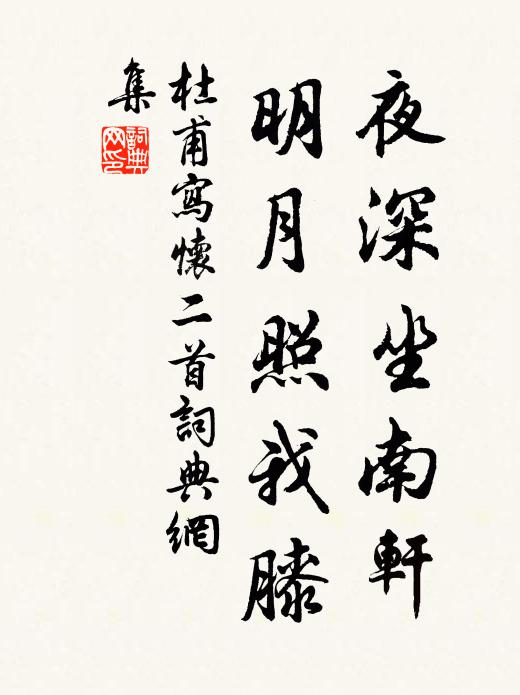 夜深坐南軒
明月照我膝
杜甫寫懷二首詞典網
集
詞典網印